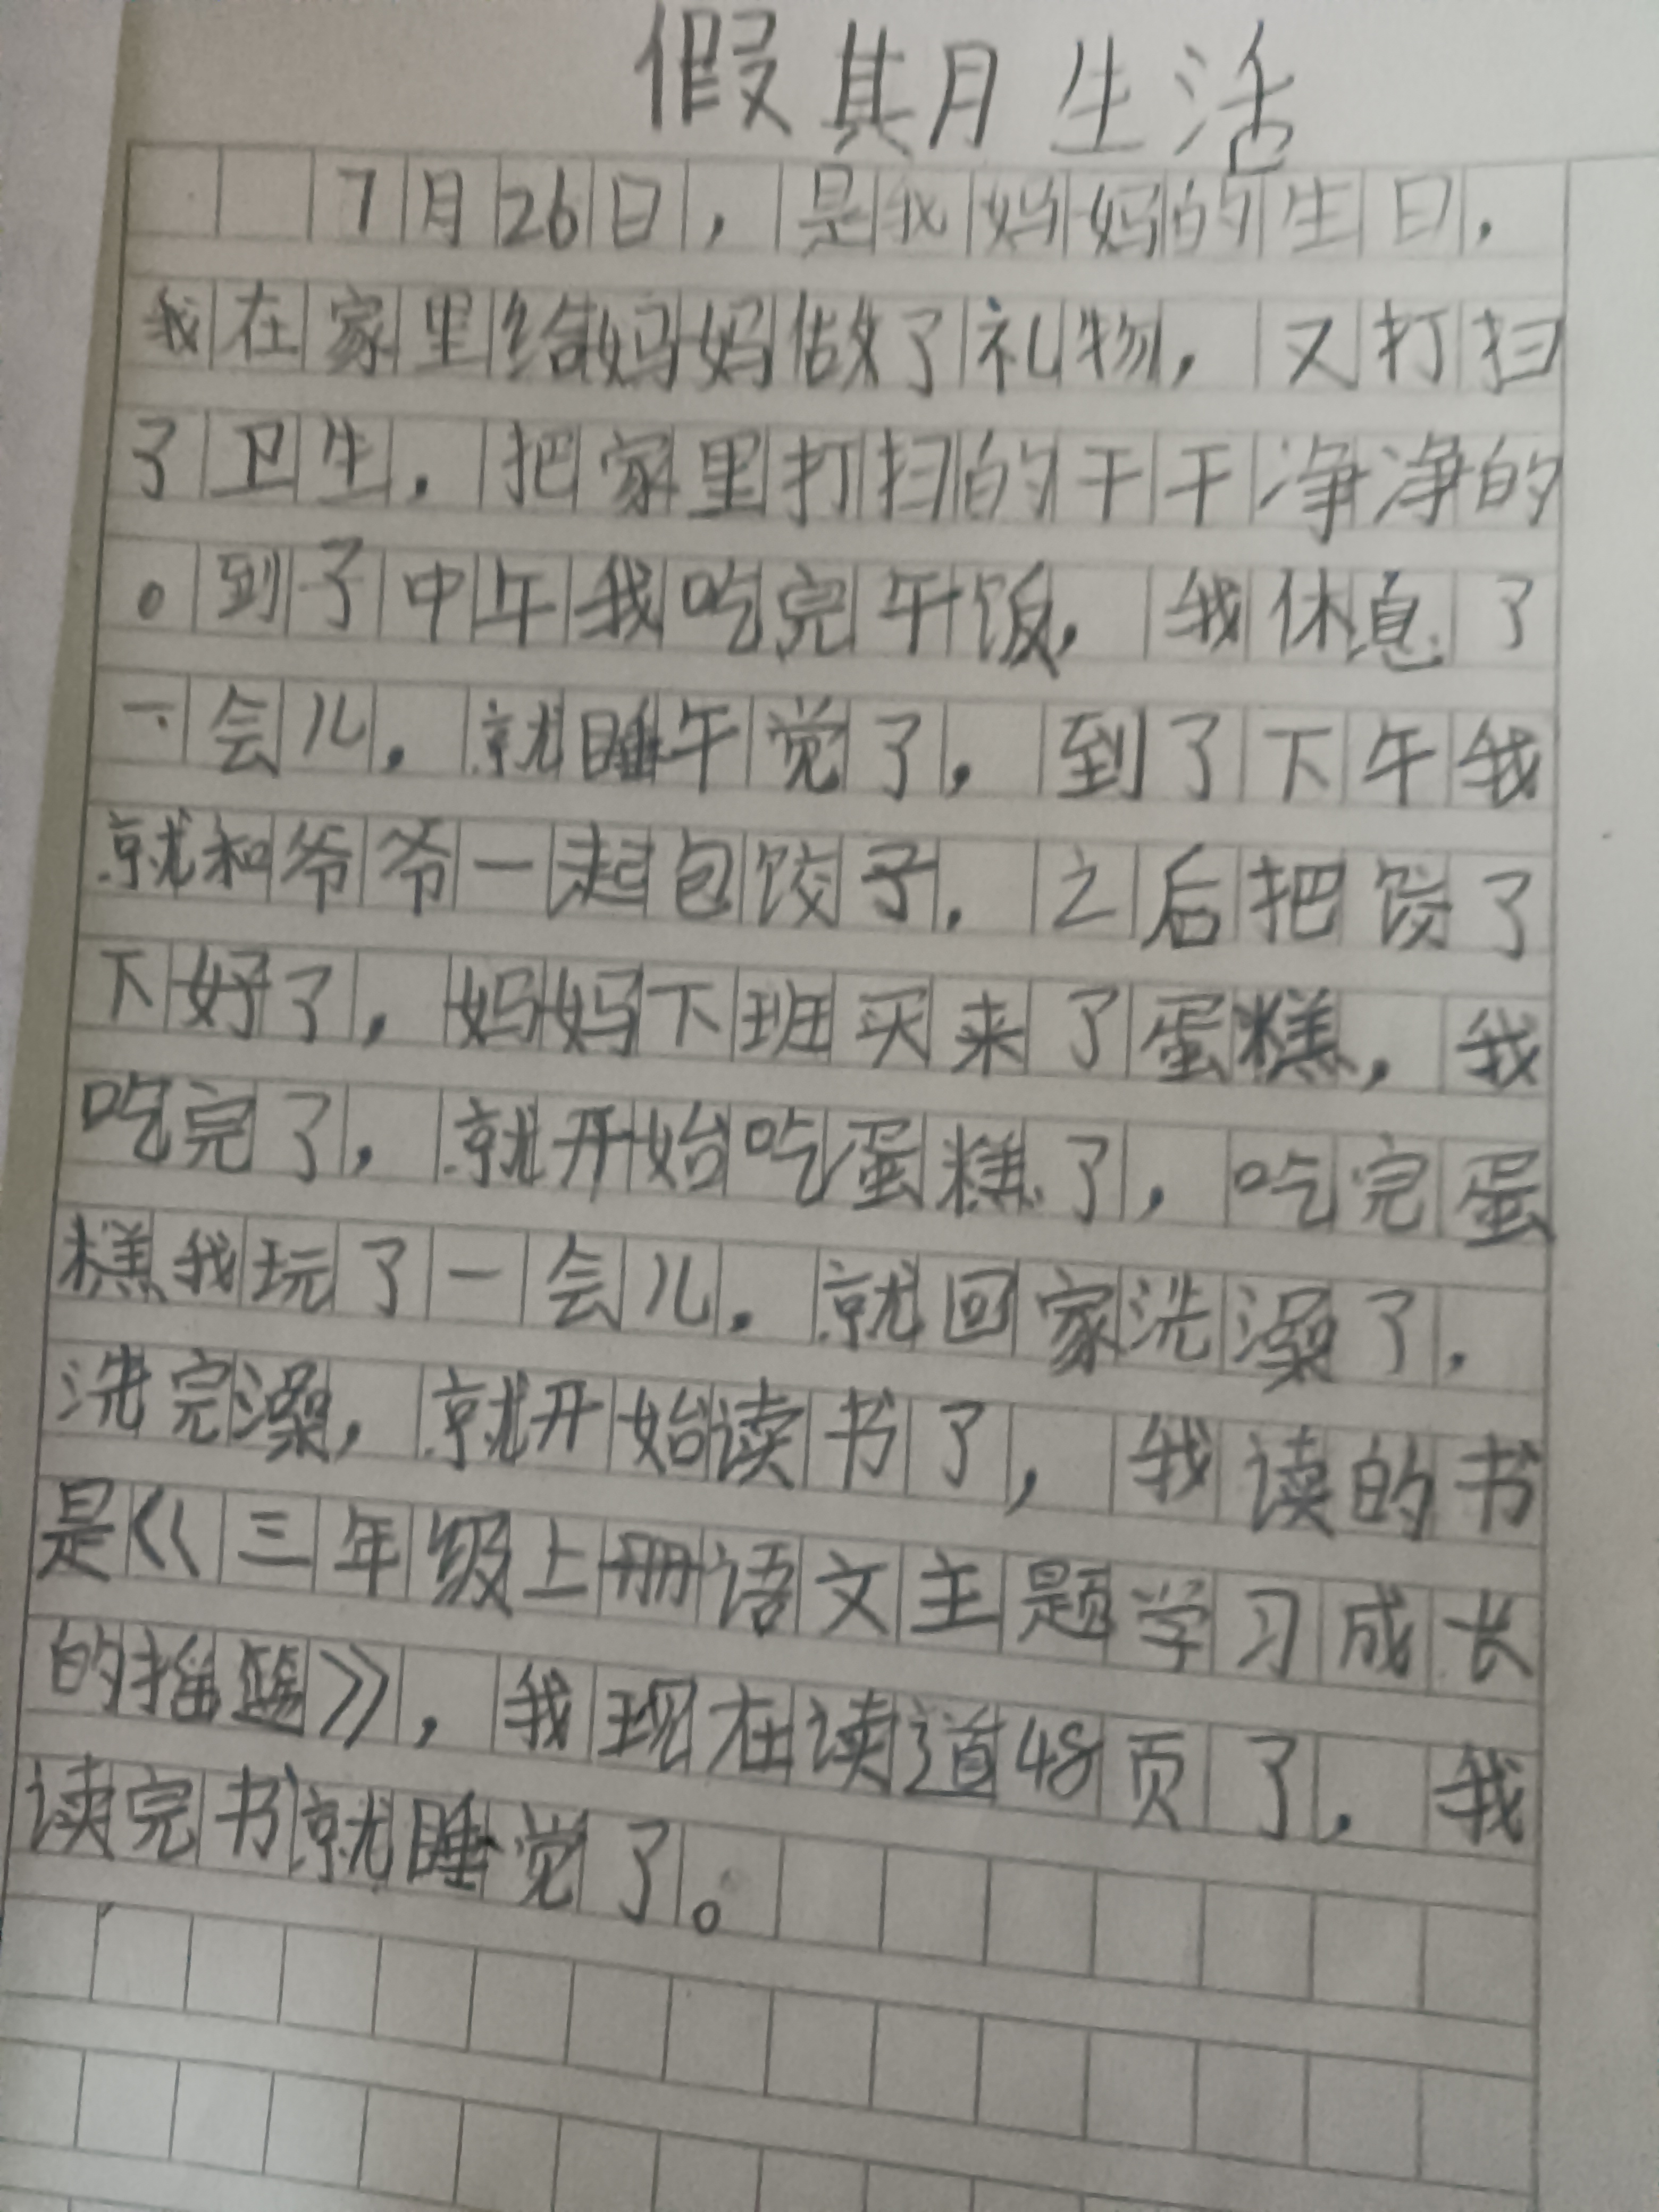 假期生活
7月26日，是我妈妈的生日，
我在家里给妈妈做了礼物，又打扫
了卫生，把家里打扫的干干净净的
。到了中午我吃完午饭，我休息了
一会儿，就睡午觉了，到了下午我
就和爷爷一起包饺子，之后把饺了
下好了，妈妈下班买来了蛋糕，我
吃完了，就开始吃蛋糕了，吃完蛋
糕我玩了一会儿，就回家洗澡了，
洗完澡，就开始读书了，我读的书
是《三年级上册语文主题学习成长
的摇篮》，我现在读道48页了，我
读完书就睡觉了。